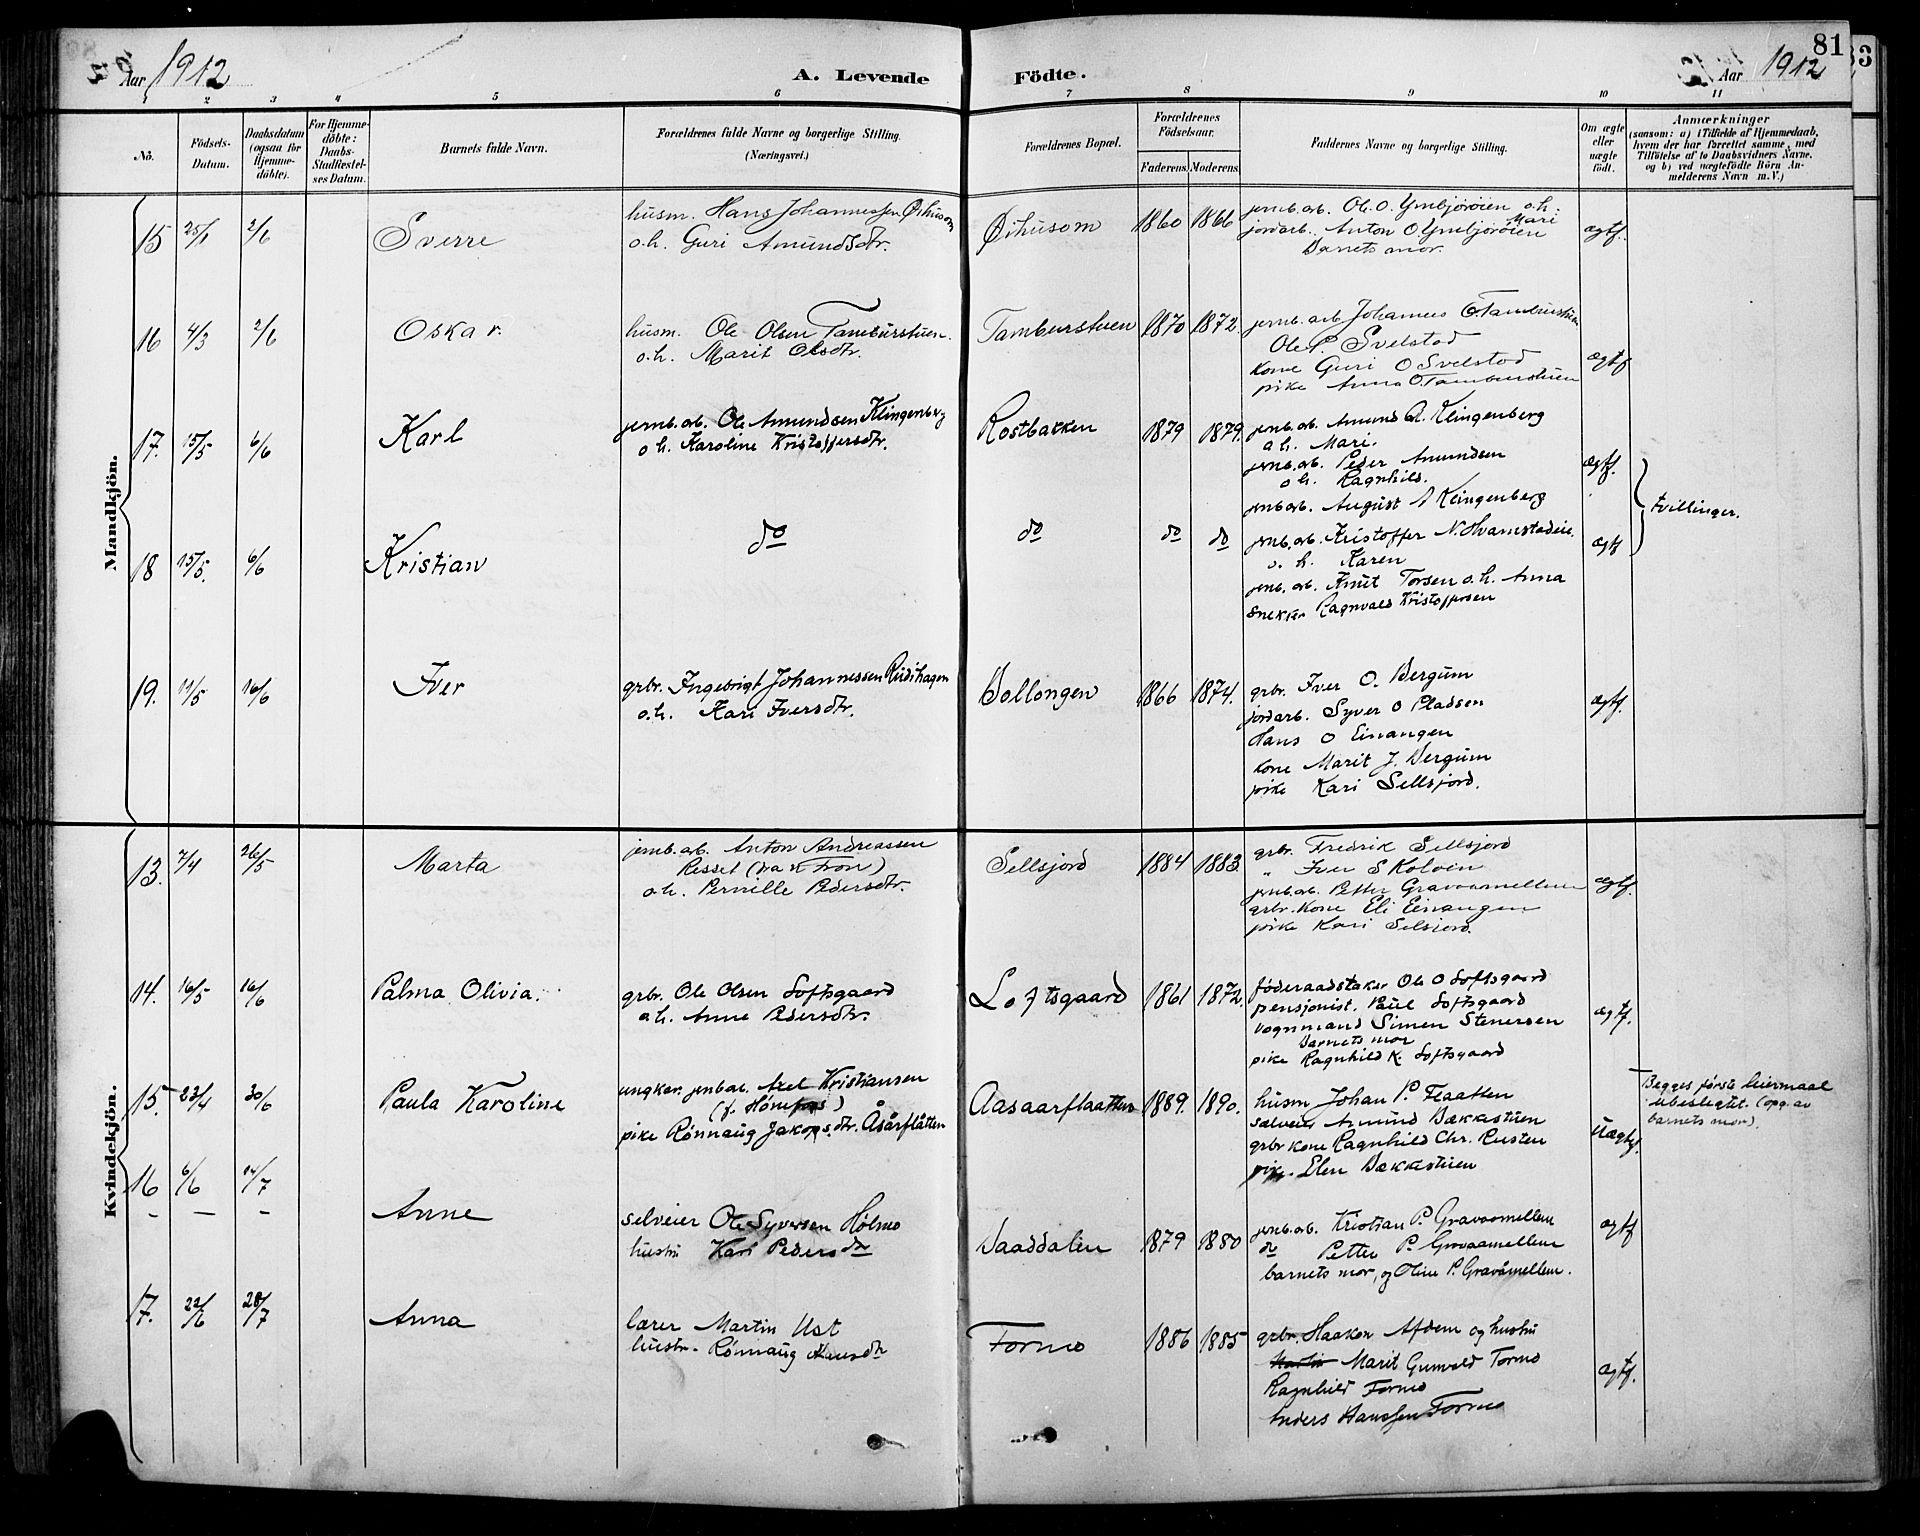 Aar 1912
A. Levende Födte.
Aar 1912
81
83
1 2 3 4 5 6 7 8 9 10 11
Nö.
Födsels-Datum.
Daabsdatum (ogsaa for Hjemme-döbte).
For Hjemme-döbte: Daabs-Stadfæstel-ses Datum.
Barnets fulde Navn.
Forældrenes fulde Navne og borgerlige Stilling. (Næringsvei.)
Forældrenes Bopæl.
Forældrenes Födselsaar.
Faderens. Moderens.
Faddernes Navne og borgerlige Stilling.
Om ægte eller uægte födt.
Anmærkninger
(saasom: a) i Tilfælde af Hjemmedaab,
hvem der har forrettet samme, med
Tilföielse af to Daabsvidners Navne,
og b) ved uægtefödte Börn An-
melderens Navn m. V.)
Mandkjön.
15 25/1 2/6 Sverre
husm. Hans Johannessen Øihusom
o.h. Guri Amundsdtr.
Øihusom 1860 1866
jernb.arb. Ole O. Ymbjöröien o.h. Mari
jordarb. Anton O. Ymbjöröien
Barnets mor.
ægtf.
16 4/3 2/6 Oskar.
husm. Ole Olsen Tamburstuen.
o.h. Marit Olsdtr.
Tamburstuen 1870 1872.
jernb.arb Johannes O. Tamburstuen
Ole P. Svelstad
kone Guri O Svelstad
pike Anna O. Tamburstuen
ægtf
17. 15/5 6/6 Karl
jernb.arb. Ole Amundsen Klingenberg
o h. Karoline Kristoffersdtr.
Rostbakken 1879 1879.
jernb.arb. Amund A. Klingenberg
o h. Mari.
jernb.arb. Peder Amundsen
o h. Ragnhild.
jernb.arb. August A Klingenberg
ægtf.
tvillinger.
18 15/5. 6/6 Kristian
do do do do
jernb.arb. Kristoffer N. Hvamstadeie.
o. h. Karen
jernb.arb. Knut Torsen o.h. Anna
snekker Ragnvald Kristoffersen
ægtf
19. 11/5 16/6 Iver
grbr. Ingebrigt Johannessen Rüdihagen
o.h. Kari Iversdtr.
Vollongen 1866 1874.
grbr. Iver O. Bergum
jordarb. Syver O Pladsen
Hans O Einangen
kone Marit J. Bergum
pike Kari Sellsjord.
ægtf.
Kvindekjön.
13. 7/4 26/5 Marta
jernb.arb. Anton Andreassen
Resset (fra N Fron)
o.h. Pernille Pedersdtr.
Sellsjord 1884 1883.
grbr. Fredrik Sellsjord
" Iver S Kolvin
jernb.arb. Petter Gravaamellem
grbr. kone Eli Einangen
pike Kari Selsjord.
ægtf.
14. 16/5 16/6 Palma Olivia.
grbr. Ole Olsen Loftsgaard
o.h. Anne Pedersdtr.
Loftsgaard 1861 1872.
föderaadstaker Ole O Loftsgaard
pensjonist. Paul Loftsgaard
vognmand Simen Stenersen
Barnets mor
pike Ragnhild K. Loftsgaard
ægtf.
15. 23/4 30/6 Paula Karoline
ungkar. jernb.ab. Axel Kristiansen
(f. Hønefos)
pike Rønnaug Jakopsdtr. Åsårflåtten
Aasaarflaatten 1889. 1890.
husm Johan P. Flaatten
sælveier Amund Bækkestuen
grbr kone Ragnhild Chr. Rusten
pike. Elen Bækkestuen
uægtf.
Begges første leiermaal
ubeslegtet. (opg. av
barnets mor).
16 6/6 14/7 Anne
selveier Ole Syversen Hølmo
hustru Kari Pedersdtr
Vaaddalen 1879 1880
jernb.arb. Kristian P. Gravaamellem
do Petter P. Gravaamellem
barnets mor, og Oline P. Gravåmellem.
ægtf
17. 22/6 28/7 Anna
lærer Martin Ust
hustr. Rønnaug Hansdtr
Formo 1886 1885
grbr. Haakon Afdem og hustru
Marit Gunvald Formo
Ragnhild Formo
Anders Hanssen Formo
ægtf.